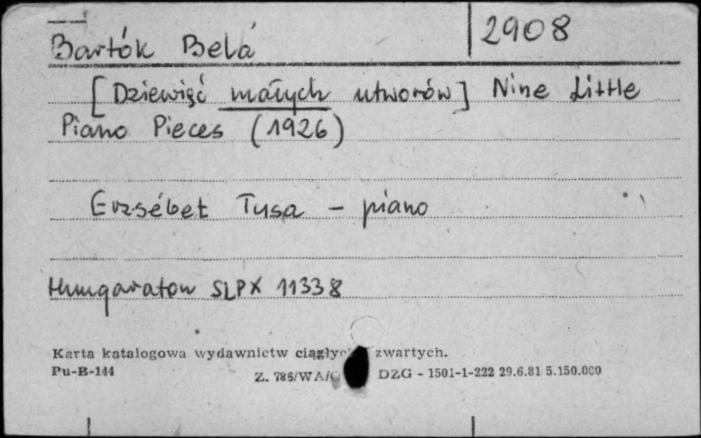 Bartók Belá 2908
[Dziewięć małych utworów] Nine Little
Piano Pieces (1926)
Erzsébet Tusa - piano
Hungaraton SLPX 11338
Karta katalogowa wydawnictw zwartych.
Pu-B-144 Z. DZG - 1501-1-222 29.6.81 5.150.000